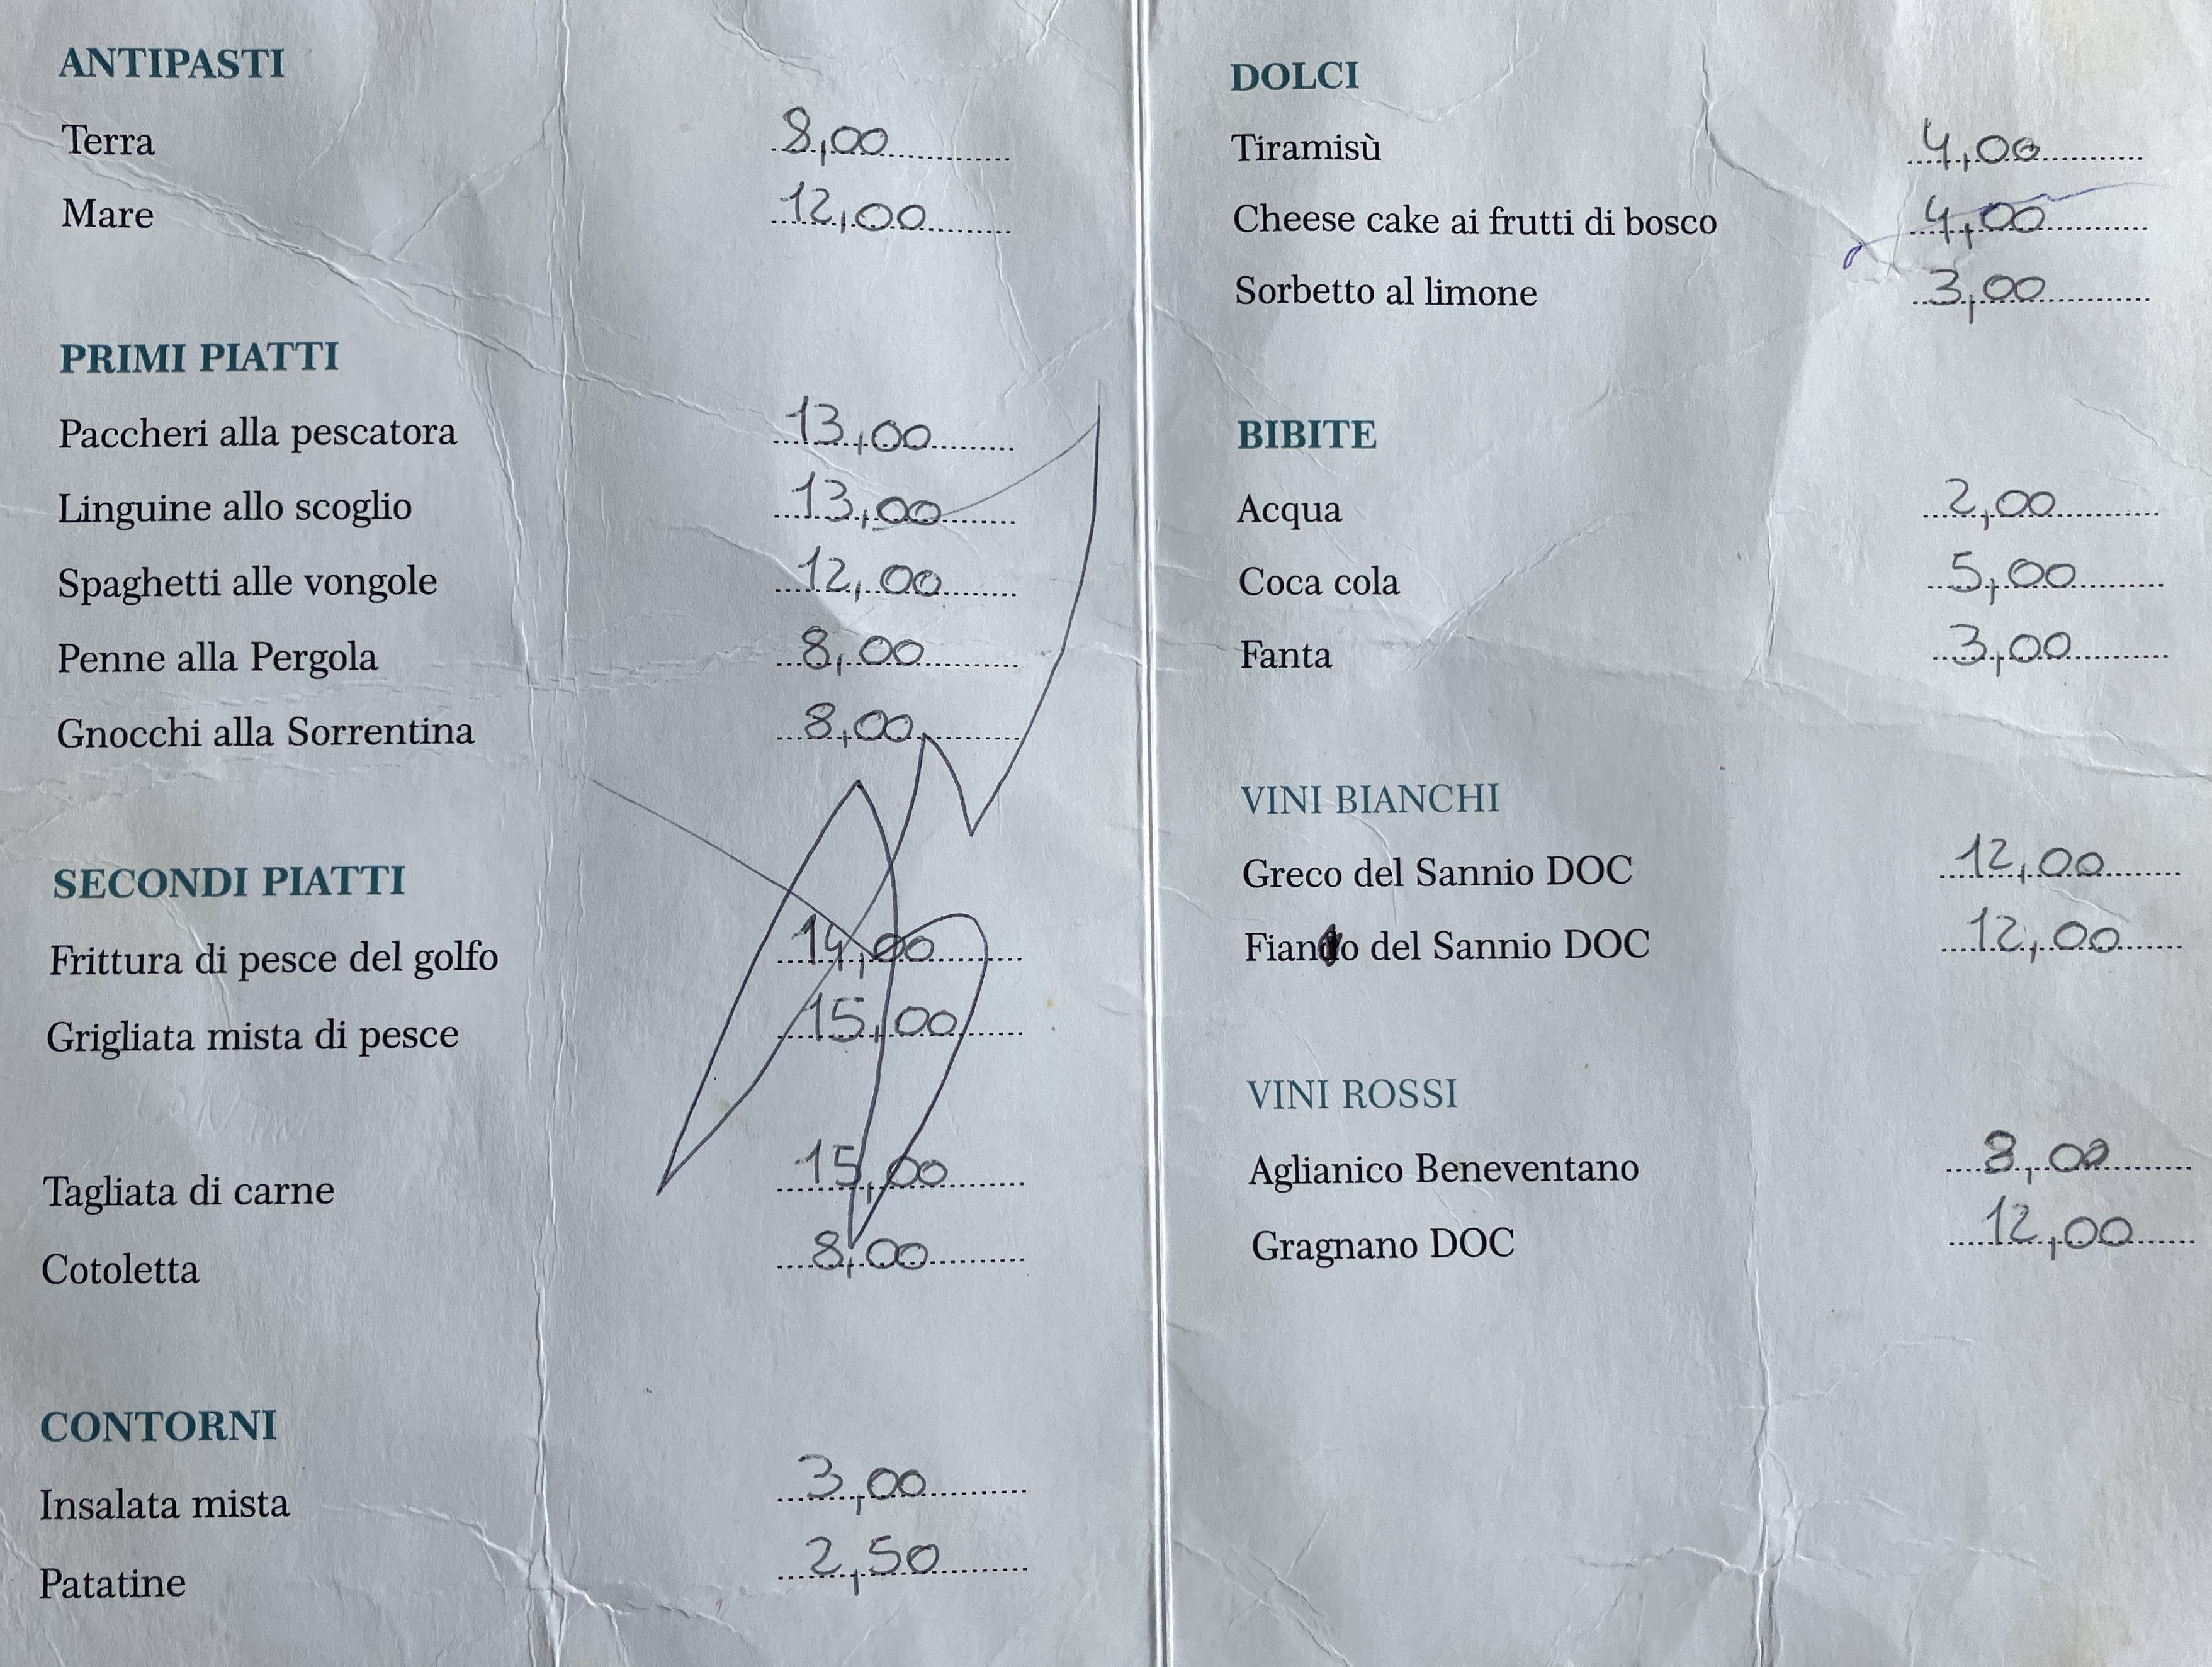 ANTIPASTI
Terra 8,00
Mare 12,00
PRIMI PIATTI
Paccheri alla pescatora 13,00
Linguine allo scoglio 13,00
Spaghetti alle vongole 12,00
Penne alla Pergola 8,00
Gnocchi alla Sorrentina 8,00
SECONDI PIATTI
Frittura di pesce del golfo 14,00
Grigliata mista di pesce 15,00
Tagliata di carne 15,00
Cotoletta 8,00
CONTORNI
Insalata mista 3,00
Patatine 2,50
DOLCI
Tiramisù 4,00
Cheese cake ai frutti di bosco 4,00
Sorbetto al limone 3,00
BIBITE
Acqua 2,00
Coca cola 5,00
Fanta 3,00
VINI BIANCHI
Greco del Sannio DOC 12,00
del Sannio DOC 12,00
VINI ROSSI
Aglianico Beneventano 8,00
Gragnano DOC 12,00